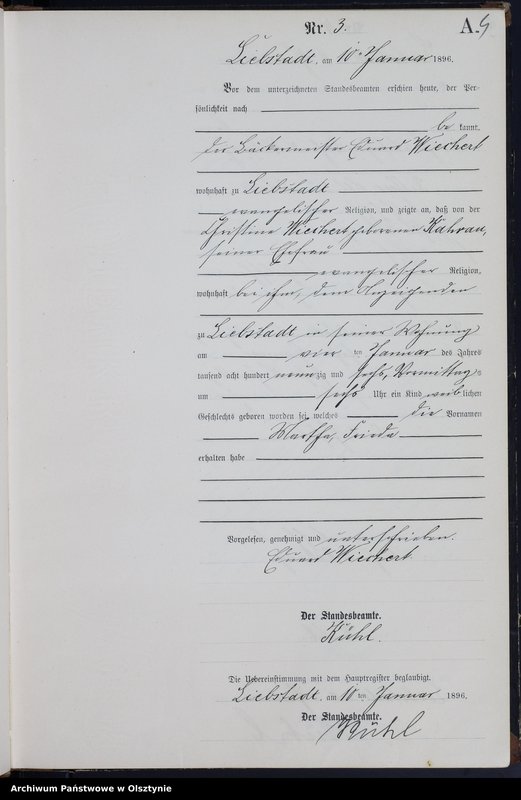 Nr. 3.
A.
Liebstadt, am 10ten Januar 1896.
Vor dem unterzeichneten Standesbeamten erschien heute, der Per-
sönlichkeit nach
be kannt,
der Bäckermeister Eduard Wiechert
wohnhaft zu Liebstadt
evangelischer Religion, und zeigte an, daß von der
Christine Wiechert geborenen
seiner Ehefrau
evangelischer Religion,
wohnhaft bei ihm, dem Anzeigenden
zu Liebstadt in seiner Wohnung
am vier ten Januar des Jahres
tausend acht hundert neunzig und sechs, Vormittags
um sechs Uhr ein Kind weiblichen
Geschlechts geboren worden sei, welches die Vornamen
Martha, Frieda
erhalten habe
Vorgelesen, genehmigt und unterschrieben.
Eduard Wiechert
Der Standesbeamte.
Kühl.
Die Uebereinstimmung mit dem Hauptregister beglaubigt.
Liebstadt, am 10 ten Januar 1896.
Der Standesbeamte.
Kühl
Archiwum Państwowe w Olsztynie